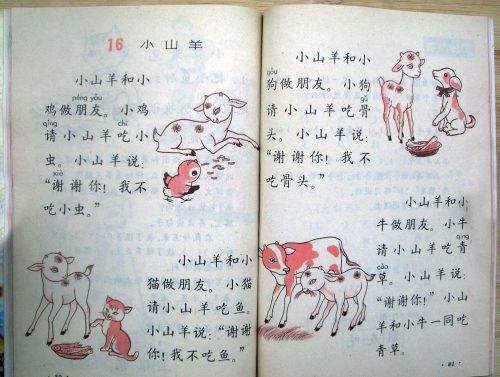 16 小山羊
小山羊和小
péng yǒu
鸡做朋友。小鸡
qǐng chī
请小山羊吃小
虫。小山羊说:
xiè
“谢谢你!我不
吃小虫。”
小山羊和小
猫做朋友。小猫
请小山羊吃鱼。
小山羊说:“谢谢
你!我不吃鱼。”
小山羊和小
gǒu
狗做朋友。小狗
gǔ
请小山羊吃骨
头。小山羊说:
“谢谢你!我不
吃骨头。”
小山羊和小
牛做朋友。小牛
qīng
请小山羊吃青
cǎo
草。小山羊说:
“谢谢你!”小山
羊和小牛一同吃
青草。
·81·